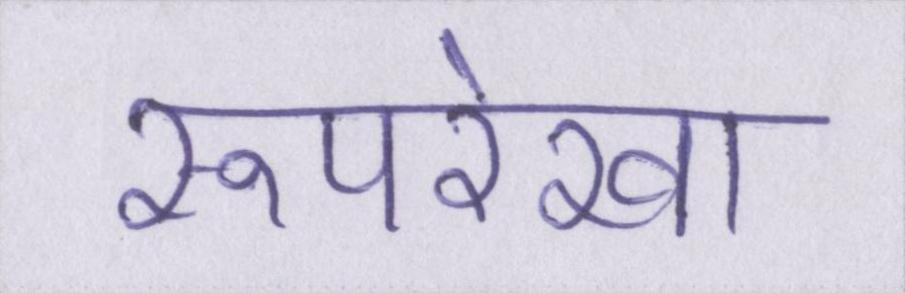 रूपरेखा